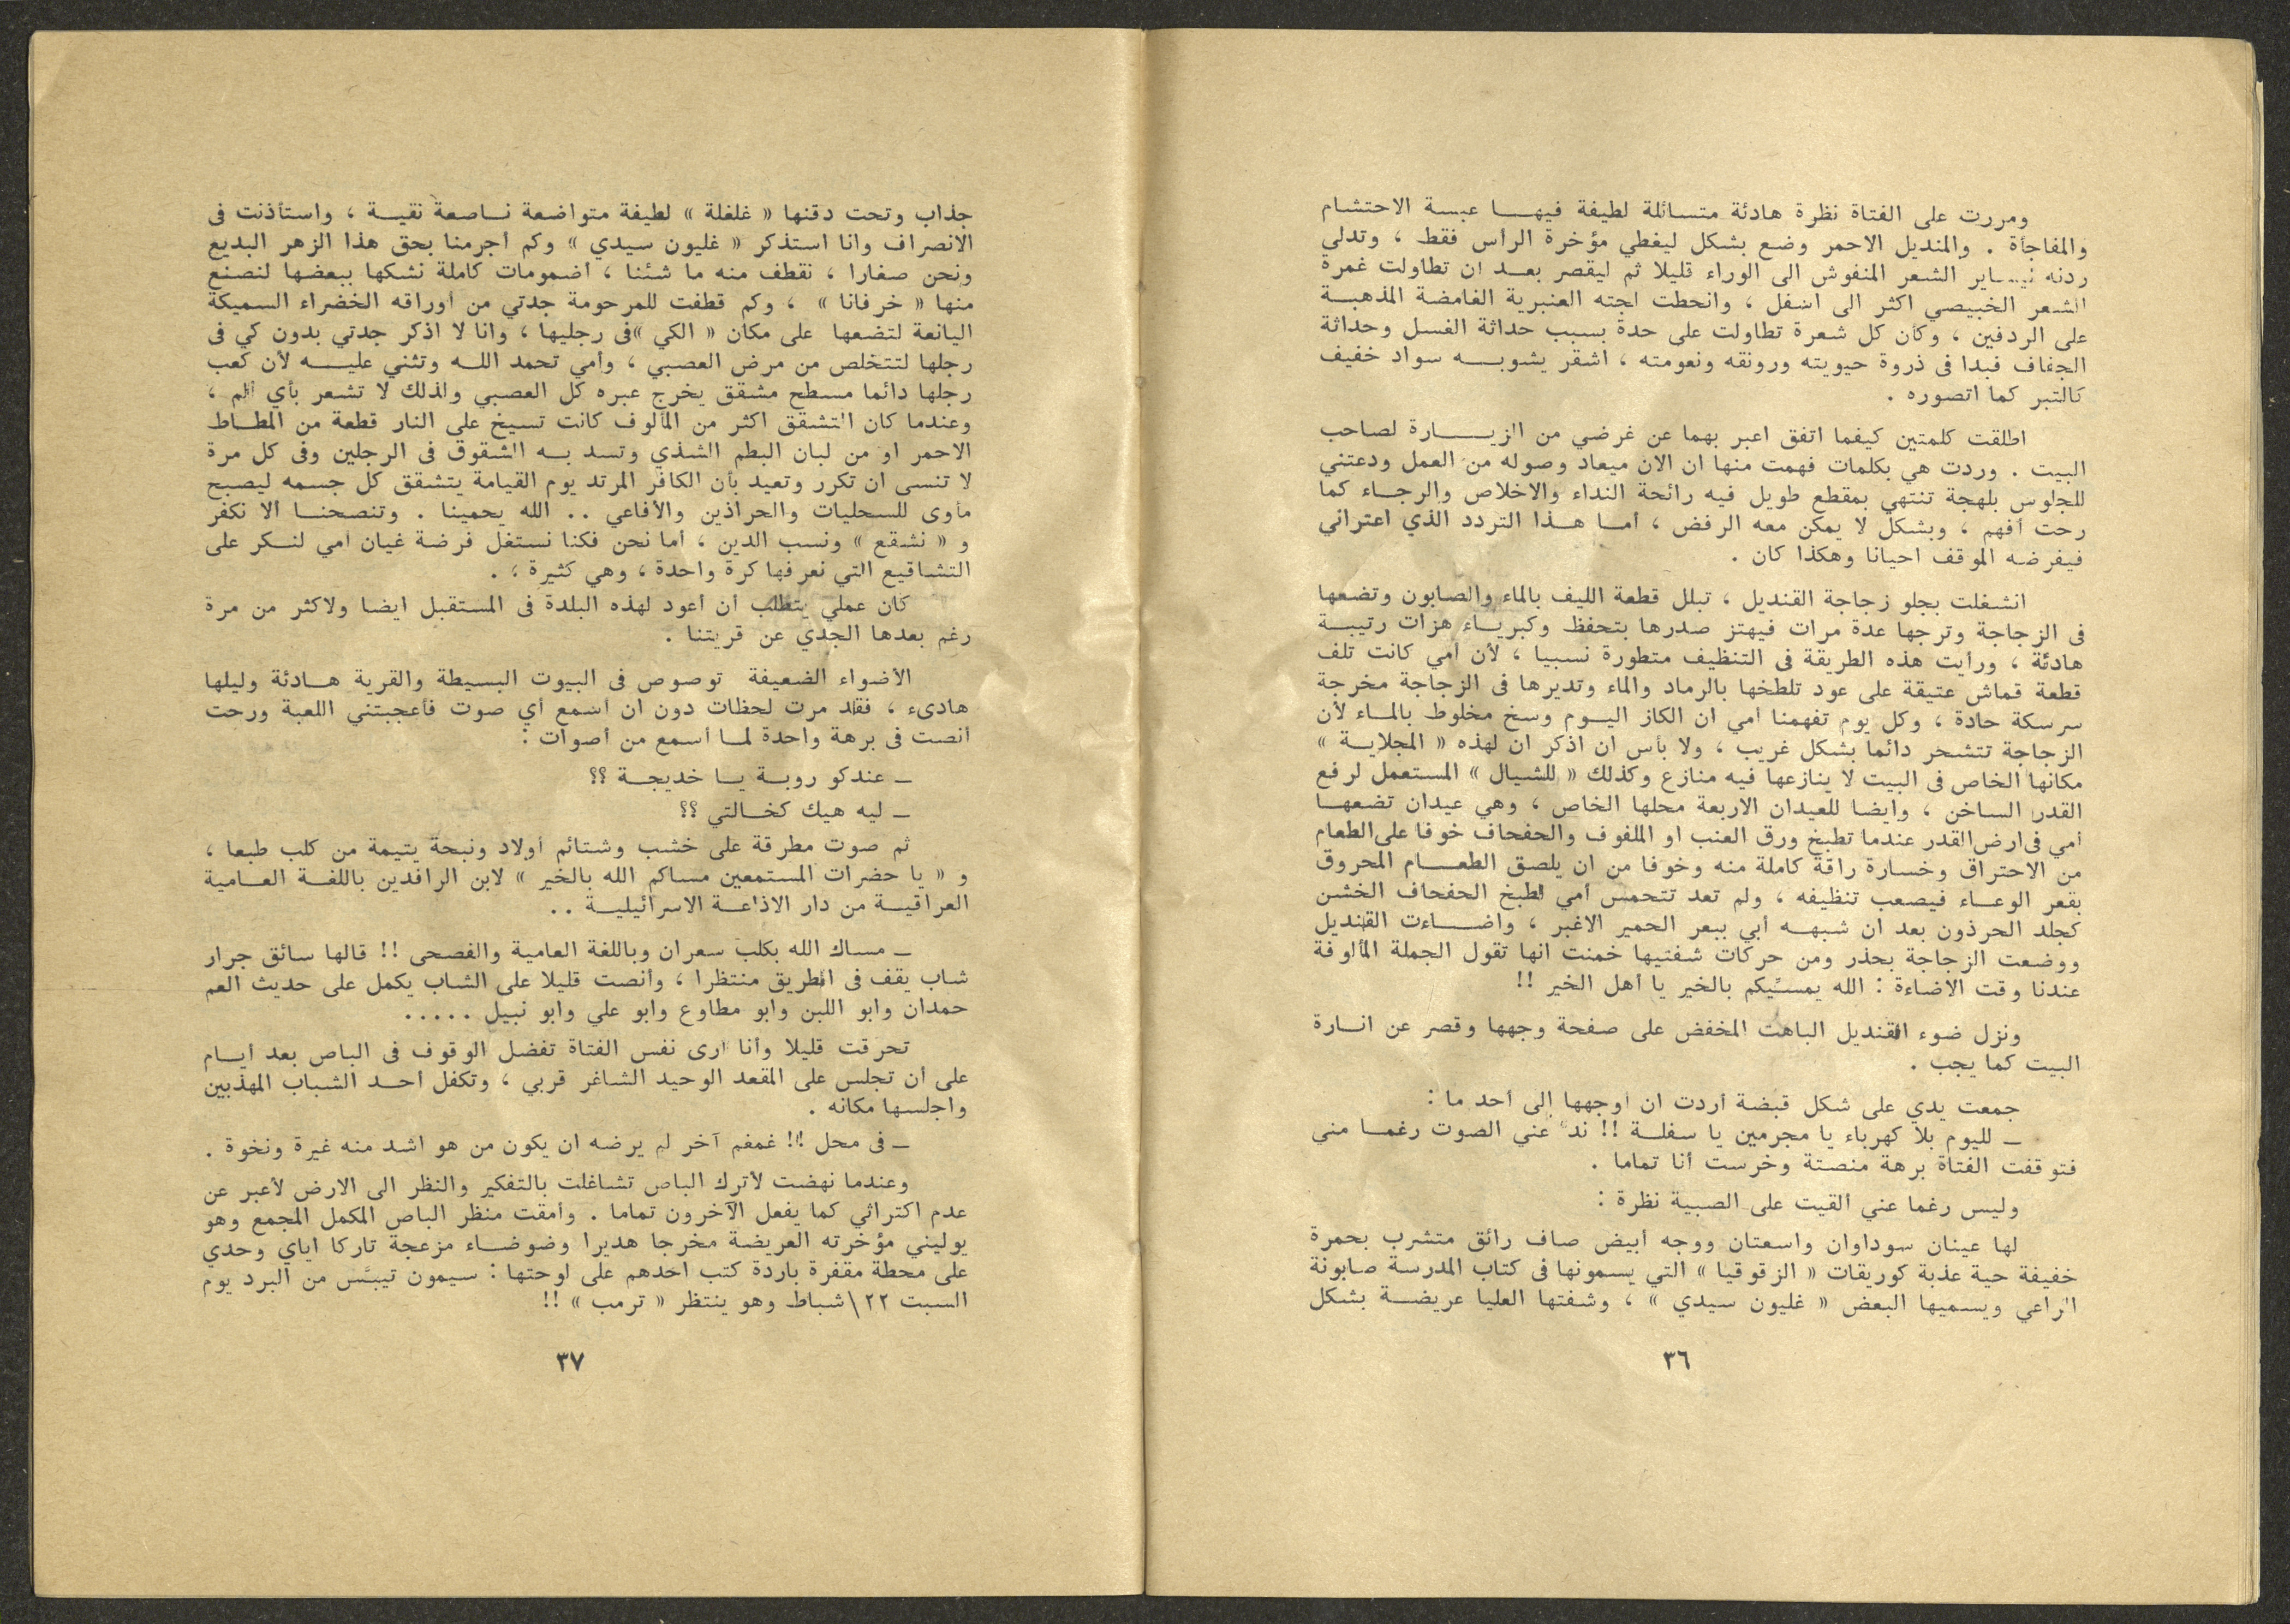 ومررت على الفتاة نظرة هادئة متسائلة لطيفة فيهـا عبسة الاحتشام
والمفاجأة . والمنديل الاحمر وضع بشكل ليغطي مؤخرة الرأس فقط ، وتدلي
ردنه ليساير الشعر المنفوش الى الوراء قليلا ثم ليقصر بعد ان تطاولت غمرة
الشعر الخبيصي اكثر الى اسفل ، وانحطت لجته العنبرية الغامضة المذهبة
على الردفين ، وكأن كل شعرة تطاولت على حدة بسبب حداثة الغسل وحداثة
الجفاف فبدا فى ذروة حيويته ورونقه ونعومته ، اشقر يشوبـه سواد خفيف
كالتبر كما اتصوره .
اطلقت كلمتين كيفما اتفق اعبر بهما عن غرضي من الزيـارة لصاحب
البيت . وردت هي بكلمات فهمت منها ان الان ميعاد وصوله من العمل ودعتني
للجلوس بلهجة تنتهي بمقطع طويل فيه رائحة النداء والاخلاص والرجاء كما
رحت أفهم ، وبشكل لا يمكن معه الرفض ، أمـا هـذا التردد الذي اعتراني
فيفرضه الموقف احيانا وهكذا كان .
انشغلت بجلو زجاجة القنديل ، تبلل قطعة الليف بالماء والصابون وتضعها
فى الزجاجة وترجها عدة مرات فيهتز صدرها بتحفظ وكبريـاء هزات رتيبـة
هادئة ، ورأيت هذه الطريقة فى التنظيف متطورة نسبيا ، لأن أمي كانت تلف
قطعة قماش عتيقة على عود تلطخها بالرماد والماء وتديرها فى الزجاجة مخرجة
سرسكة حادة ، وكل يوم تفهمنا امي ان الكاز اليـوم وسخ مخلوط بالمـاء لأن
الزجاجة تتشحر دائما بشكل غريب ، ولا بأس ان اذكر ان لهذه « المجلايـة »
مكانها الخاص فى البيت لا ينازعها فيه منازع وكذلك « للشيال » المستعمل لرفع
القدر الساخن ، وايضا للعيدان الاربعة محلها الخاص ، وهي عيدان تضعهـا
امي فى ارض القدر عندما تطبخ ورق العنب او الملفوف والحفحاف خوفا على الطعام
من الاحتراق وخسارة راقة كاملة منه وخوفا من ان يلصق الطعـام المحروق
بقعر الوعـاء فيصعب تنظيفه ، ولم تعد تتحمس أمي لطبخ الحفحاف الخشن
كجلد الحرذون بعد ان شبهـه أبي ببعر الحمير الاغبر ، واضـاءت القنديل
ووضعت الزجاجة بحذر ومن حركات شفتيها خمنت انها تقول الجملة المألوفة
عندنا وقت الاضاءة : الله يمسّيكم بالخير يا أهل الخير !!
ونزل ضوء القنديل الباهت المخفض على صفحة وجهها وقصر عن انـارة
البيت كما يجب .
جمعت يدي على شكل قبضة أردت ان أوجهها إلى أحد ما :
ـ لليوم بلا كهرباء يا مجرمين يا سفلـة !! ندّ عني الصوت رغمـا مني
فتوقفت الفتاة برهة منصتة وخرست أنا تماما .
وليس رغما عني القيت على الصبية نظرة :
لها عينان سوداوان واسعتان ووجه أبيض صاف رائق متشرب بحمرة
خفيفة حية عذبة كوريقات « الزقوقيا » التي يسمونها فى كتاب المدرسة صابونة
الراعي ويسميها البعض « غليون سيدي » ، وشفتها العليا عريضـة بشكل
٣٦
جذاب وتحت دقنها « غلغلة » لطيفة متواضعة نـاصعة نقيـة ، واستأذنت فى
الانصراف وانا استذكر « غليون سيدي » وكم أجرمنا بحق هذا الزهر البديع
ونحن صغارا ، نقطف منه ما شئنا ، اضمومات كاملة نشكها ببعضها لنصنع
منها « خرفانا » ، وكم قطفت للمرحومة جدتي من أوراقه الخضراء السميكة
اليانعة لتضعها على مكان « الكي »فى رجليها ، وانا لا اذكر جدتي بدون كي فى
رجلها لتتخلص من مرض العصبي ، وأمي تحمد اللـه وتثني عليـه لأن كعب
رجلها دائما مسطح مشقق يخرج عبره كل العصبي ولذلك لا تشعر بأي ألم ،
وعندما كان التشقق اكثر من المألوف كانت تسيخ على النار قطعة من المطـاط
الاحمر او من لبان البطم الشذي وتسد بـه الشقوق فى الرجلين وفى كل مرة
لا تنسى ان تكرر وتعيد بأن الكافر المرتد يوم القيامة يتشقق كل جسمه ليصبح
مأوى للسحليات والحراذين والأفاعي .. الله يحمينا . وتنصحنـا ألا نكفر
و « نشقع » ونسب الدين ، أما نحن فكنا نستغل فرصة غيان أمي لنـكر على
التشاقيع التي نعرفها كرة واحدة ، وهي كثيرة ، .
كان عملي يتطلب أن أعود لهذه البلدة فى المستقبل ايضا ولاكثر من مرة
رغم بعدها الجدي عن قريتنا .
الأضواء الضعيفة توصوص فى البيوت البسيطة والقرية هـادئة وليلها
هادىء ، فقد مرت لحظات دون ان اسمع أي صوت فأعجبتني اللعبة ورحت
انصت فى برهة واحدة لمـا أسمع من أصوات :
ـ عندكو روبـة يـا خديجـة ؟؟
ـ ليه هيك كخـالتي ؟؟
ثم صوت مطرقة على خشب وشتائم أولاد ونبحة يتيمة من كلب طبعا ،
و « يا حضرات المستمعين مساكم الله بالخير » لابن الرافدين باللغـة العـامية
العراقيـة من دار الاذاعـة الاسرائيليـة ..
ـ مساك الله بكلب سعران وباللغة العامية والفصحى !! قالها سائق جرار
شاب يقف فى الطريق منتظرا ، وأنصت قليلا على الشاب يكمل على حديث العم
حمدان وابو اللبن وابو مطاوع وابو علي وابو نبيل .....
تحرقت قليلا وأنا ارى نفس الفتاة تفضل الوقوف فى الباص بعد أيـام
على ان تجلس على المقعد الوحيد الشاغر قربي ، وتكفل احـد الشباب المهذبين
واجلسها مكانه .
ـ فى محل !! غمغم آخر لم يرضه ان يكون من هو اشد منه غيرة ونخوة .
وعندما نهضت لأترك الباص تشاغلت بالتفكير والنظر الى الارض لأعبر عن
عدم اكتراثي كما يفعل الآخرون تماما . وامقت منظر الباص المكمل المجمع وهو
يوليني مؤخرته العريضة مخرجا هديرا وضوضـاء مزعجة تاركا اياي وحدي
على محطة مقفرة باردة كتب احدهم على لوحتها : سيمون تيبّس من البرد يوم
السبت ٢٢\شباط وهو ينتظر « ترمب » !!
٣٧